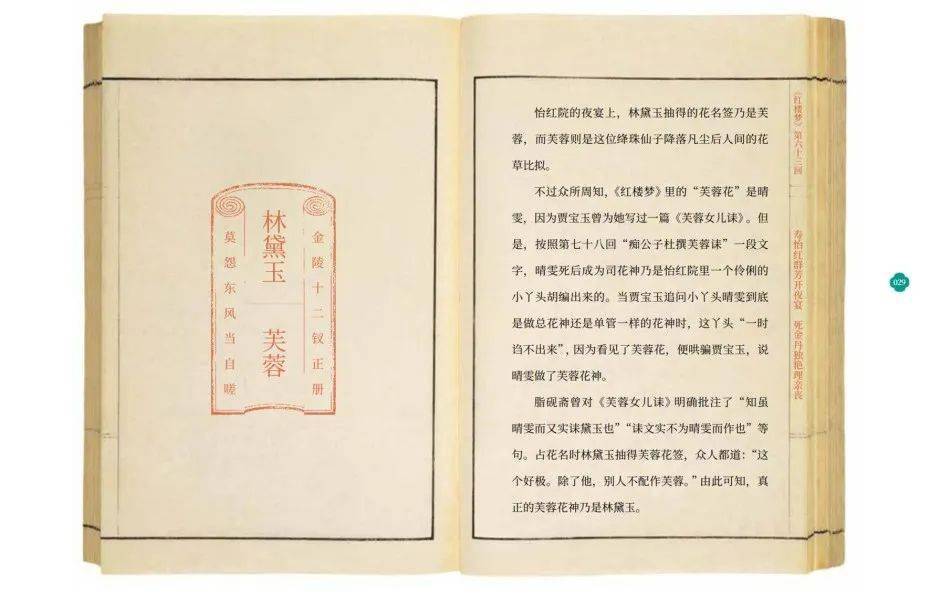 金陵十二钗正册
林黛玉 芙蓉
莫怨东风当自嗟
怡红院的夜宴上，林黛玉抽得的花名签乃是芙
蓉，而芙蓉则是这位绛珠仙子降落凡尘后人间的花
草比拟。
不过众所周知，《红楼梦》里的“芙蓉花”是晴
雯，因为贾宝玉曾为她写过一篇《芙蓉女儿诔》。但
是，按照第七十八回“痴公子杜撰芙蓉诔”一段文
字，晴雯死后成为司花神乃是怡红院里一个伶俐的
小丫头胡编出来的。当贾宝玉追问小丫头晴雯到底
是做总花神还是单管一样的花神时，这丫头“一时
诌不出来”，因为看见了芙蓉花，便哄骗贾宝玉，说
晴雯做了芙蓉花神。
脂砚斋曾对《芙蓉女儿诔》明确批注了“知虽
诔晴雯而又实诔黛玉也”“诔文实不为晴雯而作也”等
句。占花名时林黛玉抽得芙蓉花签，众人都道：“这
个好极。除了他，别人不配作芙蓉。”由此可知，真
正的芙蓉花神乃是林黛玉。
《红楼梦》第六十三回
寿怡红群芳开夜宴 死金丹独艳理亲丧
029